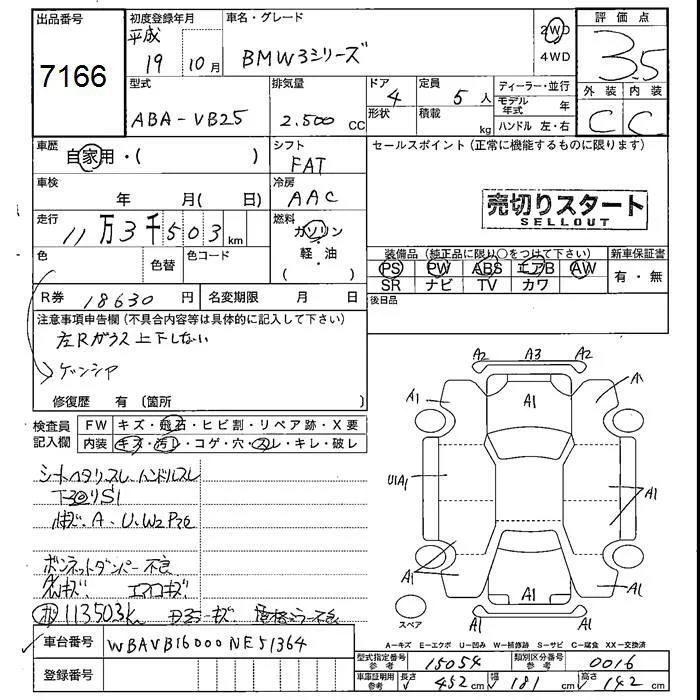 出品番号
7166
初度登録年月
平成
19 10月
車名・グレード
BMW3シリーズ
2WD
4WD
評価点
3.5
外装 内装
C C
型式
ABA-VB25
排気量
2.500 CC
ドア 4
形状
定員 5人
積載 kg
ディーラー・並行
モデル年式 年
ハンドル 左・右
車歴
自家用・( )
シフト
FAT
セールスポイント(正常に機能するものに限ります)
車検 年 月( 日)
冷房
AAC
売切りスタート
SELLOUT
走行
11万3千503km
燃料
ガソリン
・
軽・油
( )
色 色替 色コード
装備品(純正品に限り○をつけて下さい)
PS PW ABS エアB AW
SR ナビ TV カワ
新車保証書
有・無
R券 18630円
名変期限 月 日
後日品
注意事項申告欄(不具合内容等は具体的に記入して下さい)
左Rガラス上下しない
ゲンシャ
修復歴 有(箇所 )
検査員記入欄
FW キズ・飛石・ヒビ割・リペア跡・X要
内装 キズ・汚レ・コゲ・穴・スレ・キレ・破レ
シートヘタリスレ、ハンドルスレ
A、U、W2
ボンネットダンパー不良
エアロキズ
113503km
車台番号
WBAVB16000NE51364
登録番号
A2 A3 A2
A1 A1 A1
U1A1 A1
A1 A1 A1
A1 A1
スペア
A=キズ E=エクボ U=凹み W=補修跡 S=サビ C=腐食 XX=交換済
型式指定番号 参考 15054
類別区分番号 参考 0016
車庫証明用 参考 長さ 452cm 幅 181cm 高さ 142cm